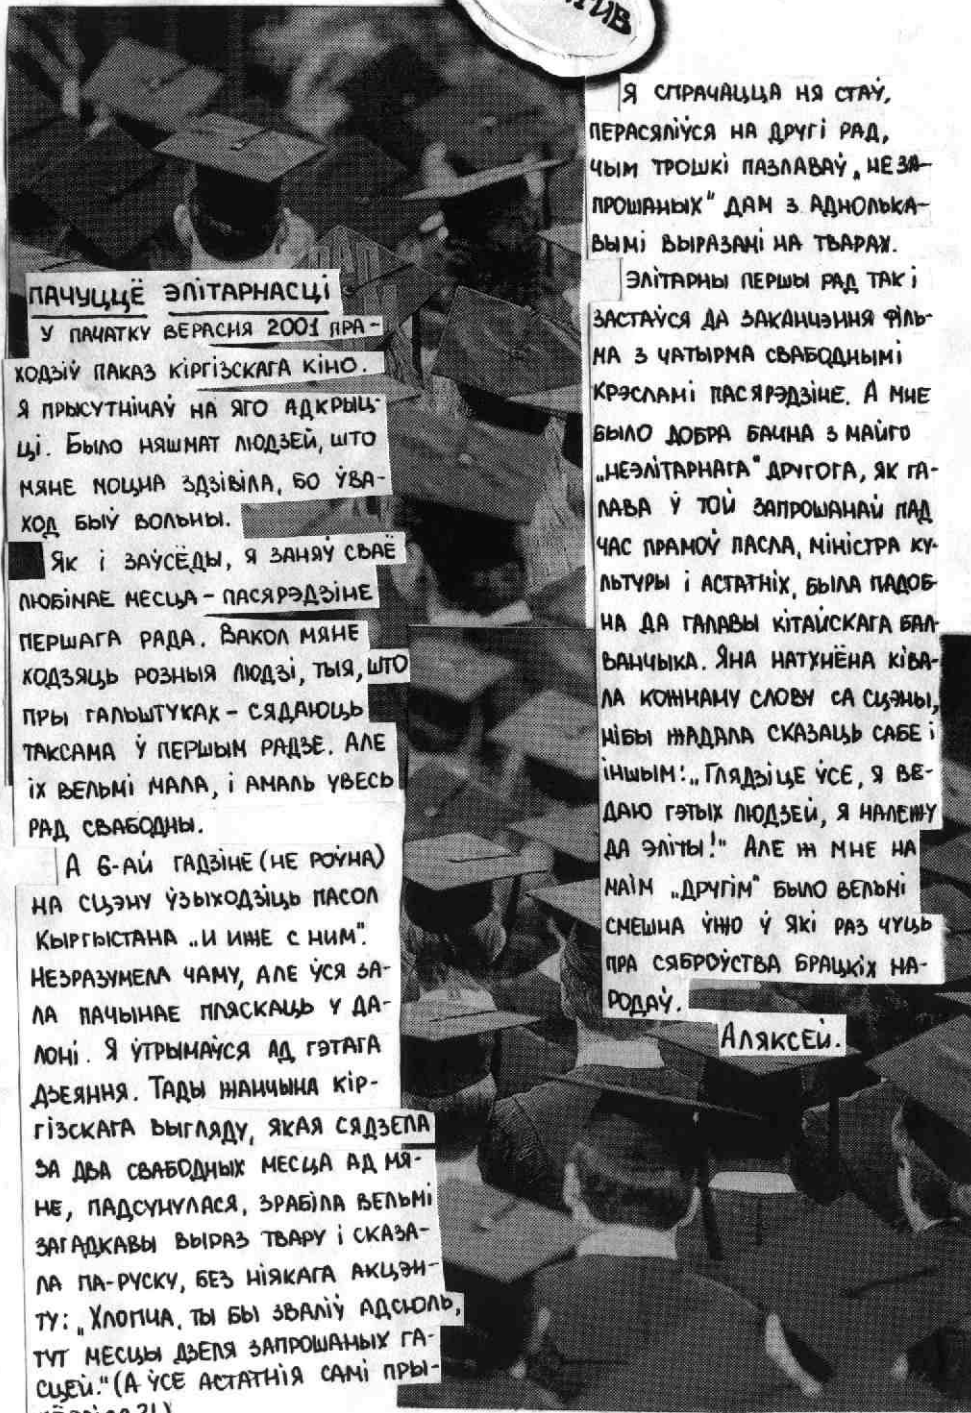 ПАЧУЦЦЁ ЭЛІТАРНАСЦІ
У ПАЧАТКУ ВЕРАСНЯ 2001 ПРА-
ХОДЗІЎ ПАКАЗ КІРГІЗСКАГА КІНО.
Я ПРЫСУТНІЧАЎ НА ЯГО АДКРЫЦ-
ЦІ. БЫЛО НЯШМАТ ЛЮДЗЕЙ, ШТО
МЯНЕ МОЦНА ЗДЗІВІЛА, БО ЎВА-
ХОД БЫЎ ВОЛЬНЫ.
ЯК І ЗАЎСЁДЫ, Я ЗАНЯЎ СВАЁ
ЛЮБІМАЕ МЕСЦА – ПАСЯРЭДЗІНЕ
ПЕРШАГА РАДА. ВАКОЛ МЯНЕ
ХОДЗЯЦЬ РОЗНЫЯ ЛЮДЗІ, ТЫЯ, ШТО
ПРЫ ГАЛЬШТУКАХ – СЯДАЮЦЬ
ТАКСАМА Ў ПЕРШЫМ РАДЗЕ. АЛЕ
ІХ ВЕЛЬМІ МАЛА, І АМАЛЬ УВЕСЬ
РАД СВАБОДНЫ.
А 6-АЙ ГАДЗІНЕ (НЕ РОЎНА)
НА СЦЭНУ ЎЗЫХОДЗІЦЬ ПАСОЛ
КЫРГЫСТАНА „И ИЖЕ С НИМ".
НЕЗРАЗУМЕЛА ЧАМУ, АЛЕ ЎСЯ ЗА-
ЛА ПАЧЫНАЕ ПЛЯСКАЦЬ У ДА-
ЛОНІ. Я ЎТРЫМАЎСЯ АД ГЭТАГА
ДЗЕЯННЯ. ТАДЫ ЖАНЧЫНА КІР-
ГІЗСКАГА ВЫГЛЯДУ, ЯКАЯ СЯДЗЕЛА
ЗА ДВА СВАБОДНЫХ МЕСЦА АД МЯ-
НЕ, ПАДСУНУЛАСЯ, ЗРАБІЛА ВЕЛЬМІ
ЗАГАДКАВЫ ВЫРАЗ ТВАРУ І СКАЗА-
ЛА ПА-РУСКУ, БЕЗ НІЯКАГА АКЦЭН-
ТУ: „ХЛОПЧА, ТЫ БЫ ЗВАЛІЎ АДСЮЛЬ,
ТУТ МЕСЦЫ ДЗЕЛЯ ЗАПРОШАНЫХ ГА-
СЦЕЙ." (А ЎСЕ АСТАТНІЯ САМІ ПРЫ-
Я СПРАЧАЦЦА НЯ СТАЎ,
ПЕРАСЯЛІЎСЯ НА ДРУГІ РАД,
ЧЫМ ТРОШКІ ПАЗЛАВАЎ „НЕЗА-
ПРОШАНЫХ" ДАМ З АДНОЛЬКА-
ВЫМІ ВЫРАЗАМІ НА ТВАРАХ.
ЭЛІТАРНЫ ПЕРШЫ РАД ТАК І
ЗАСТАЎСЯ ДА ЗАКАНЧЭННЯ ФІЛЬ-
МА З ЧАТЫРМА СВАБОДНЫМІ
КРЭСЛАМІ ПАСЯРЭДЗІНЕ. А МНЕ
БЫЛО ДОБРА БАЧНА З МАЙГО
„НЕЭЛІТАРНАГА" ДРУГОГА, ЯК ГА-
ЛАВА Ў ТОЙ ЗАПРОШАНАЙ ПАД
ЧАС ПРАМОЎ ПАСЛА, МІНІСТРА КУ-
ЛЬТУРЫ І АСТАТНІХ, БЫЛА ПАДОБ-
НА ДА ГАЛАВЫ КІТАЙСКАГА БАЛ-
ВАНЧЫКА. ЯНА НАТХНЁНА КІВА-
ЛА КОЖНАМУ СЛОВУ СА СЦЭНЫ,
НІБЫ ЖАДАЛА СКАЗАЦЬ САБЕ І
ІНШЫМ: „ГЛЯДЗІЦЕ ЎСЕ, Я ВЕ-
ДАЮ ГЭТЫХ ЛЮДЗЕЙ, Я НАЛЕЖУ
ДА ЭЛІТЫ!" АЛЕ Ж МНЕ НА
МАІМ „ДРУГІМ" БЫЛО ВЕЛЬМІ
СМЕШНА ЎЖО Ў ЯКІ РАЗ ЧУЦЬ
ПРА СЯБРОЎСТВА БРАЦКІХ НА-
РОДАЎ.
АЛЯКСЕЙ.